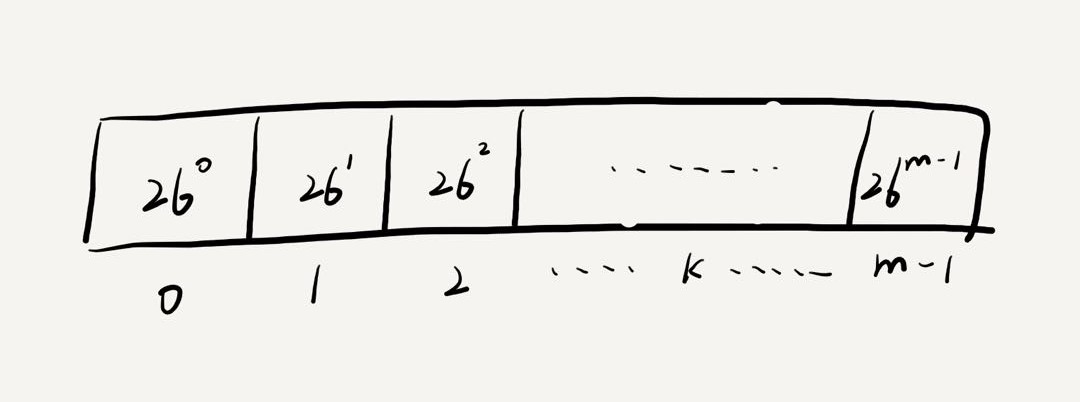 26⁰ 26¹ 26² ......... 26ᵐ⁻¹
0 1 2 .... k ...... m-1